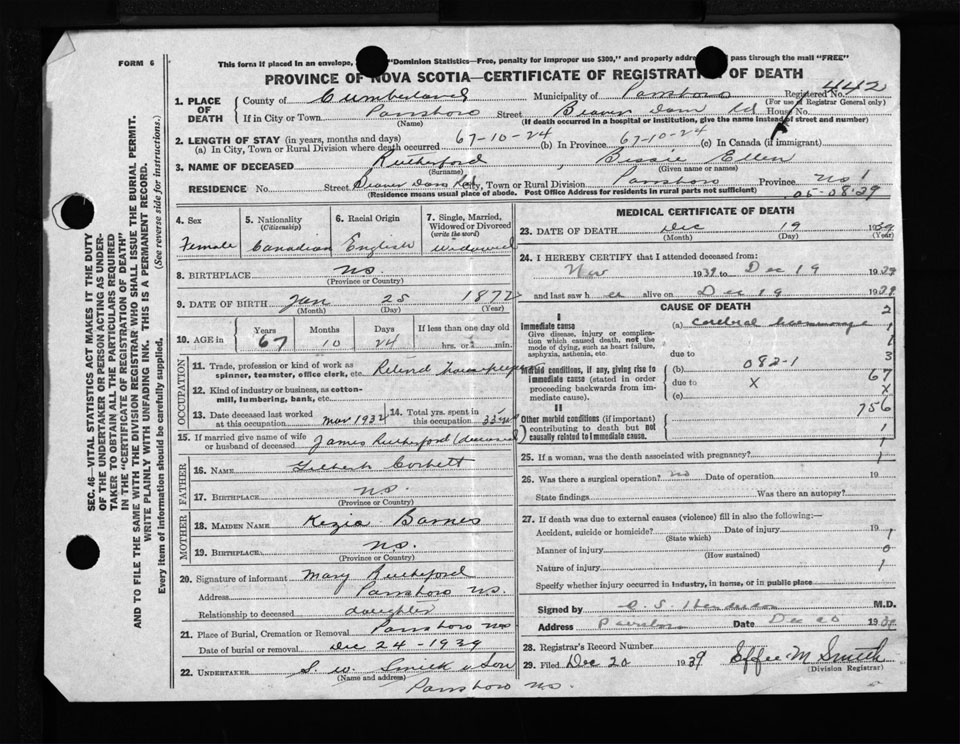 FORM 6
This form if placed in an envelope, "Dominion Statistics—Free, penalty for improper use $300," and properly addre pass through the mail "FREE"
PROVINCE OF NOVA SCOTIA—CERTIFICATE OF REGISTRATION OF DEATH
Registered No. 4442
(For use of Registrar General only)
1. PLACE OF DEATH
County of Cumberland Municipality of Parrsboro
If in City or Town Parrsboro Street Beaver Dam Rd House No.
(Name) (If death occurred in a hospital or institution, give the name instead of street and number)
2. LENGTH OF STAY (in years, months and days)
(a) In City, Town or Rural Division where death occurred 67-10-24 (b) In Province 67-10-24 (c) In Canada (if immigrant)
3. NAME OF DECEASED Rutherford Bessie Ellen
(Surname) (Given name or names)
RESIDENCE No. Street Beaver Dam Rd City, Town or Rural Division Parrsboro Province NS
(Residence means usual place of abode. Post Office Address for residents in rural parts not sufficient)
05-08-29
4. Sex
Female
5. Nationality
(Citizenship)
Canadian
6. Racial Origin
English
7. Single, Married, Widowed or Divorced
(write the word)
Widowed
8. BIRTHPLACE NS
(Province or Country)
9. DATE OF BIRTH Jan 25 1872
(Month) (Day) (Year)
10. AGE in
Years Months Days If less than one day old
67 10 24 hrs. or min.
OCCUPATION
11. Trade, profession or kind of work as spinner, teamster, office clerk, etc. Retired Housekeeper
12. Kind of industry or business, as cotton-mill, lumbering, bank, etc.
13. Date deceased last worked at this occupation
14. Total yrs. spent in this occupation
15. If married give name of wife or husband of deceased James Rutherford (deceased)
FATHER
16. NAME Gilbert Corbett
17. BIRTHPLACE NS.
(Province or Country)
MOTHER
18. MAIDEN NAME Kezia Barnes
19. BIRTHPLACE NS.
(Province or Country)
20. Signature of informant Mary Rutherford
Address Parrsboro NS.
Relationship to deceased daughter
21. Place of Burial, Cremation or Removal Parrsboro NS
Date of burial or removal Dec 24 - 1939
22. UNDERTAKER S. W. Smith & Son
(Name and address)
Parrsboro NS.
MEDICAL CERTIFICATE OF DEATH
23. DATE OF DEATH Dec 19 1939
(Month) (Day) (Year)
24. I HEREBY CERTIFY that I attended deceased from:
Nov 1939 to Dec 19 1939
and last saw h er alive on Dec 19 1939
CAUSE OF DEATH
I
Immediate cause
Give disease, injury or complication which caused death, not the mode of dying, such as heart failure, asphyxia, asthenia, etc.
(a) cerebral haemorrhage
due to
Morbid conditions, if any, giving rise to immediate cause (stated in order proceeding backwards from immediate cause).
(b) 082-1
due to X
(c)
II
Other morbid conditions (if important) contributing to death but not causally related to immediate cause.
2
1
1
3
67
X
756
1
1
25. If a woman, was the death associated with pregnancy? 1
26. Was there a surgical operation? no Date of operation 19
State findings Was there an autopsy?
27. If death was due to external causes (violence) fill in also the following:—
Accident, suicide or homicide? Date of injury 19 1
(State which)
Manner of injury 0
(How sustained)
Nature of injury 1
Specify whether injury occurred in industry, in home, or in public place
Signed by M.D.
Address Parrsboro Date Dec 20 1939
28. Registrar's Record Number
29. Filed Dec 20 1939 Effie M Smith
(Division Registrar)
SEC. 46—VITAL STATISTICS ACT MAKES IT THE DUTY
OF THE UNDERTAKER OR PERSON ACTING AS UNDER-
TAKER TO OBTAIN ALL THE PARTICULARS REQUIRED
IN THE "CERTIFICATE OF REGISTRATION OF DEATH"
AND TO FILE THE SAME WITH THE DIVISION REGISTRAR WHO SHALL ISSUE THE BURIAL PERMIT.
WRITE PLAINLY WITH UNFADING INK. THIS IS A PERMANENT RECORD.
Every item of information should be carefully supplied. (See reverse side for instructions.)